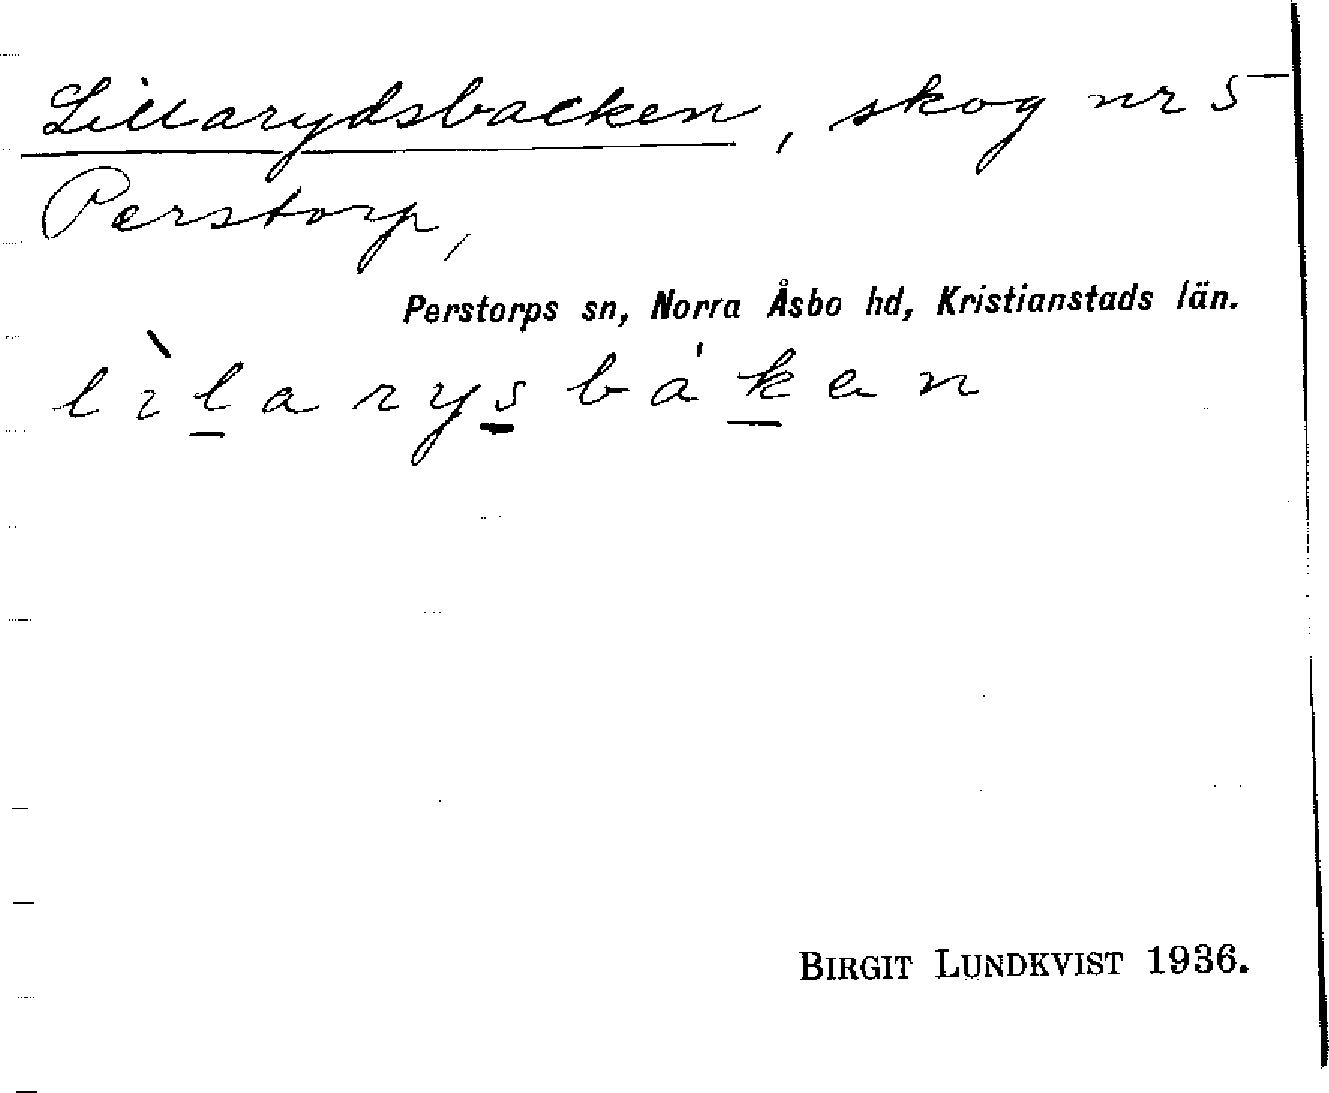 Lillarydsbacken, skog nr 5
Perstorp,
Perstorps sn, Norra Åsbo hd, Kristianstads län.
lìlarysbákan
BIRGIT LUNDKVIST 1936.